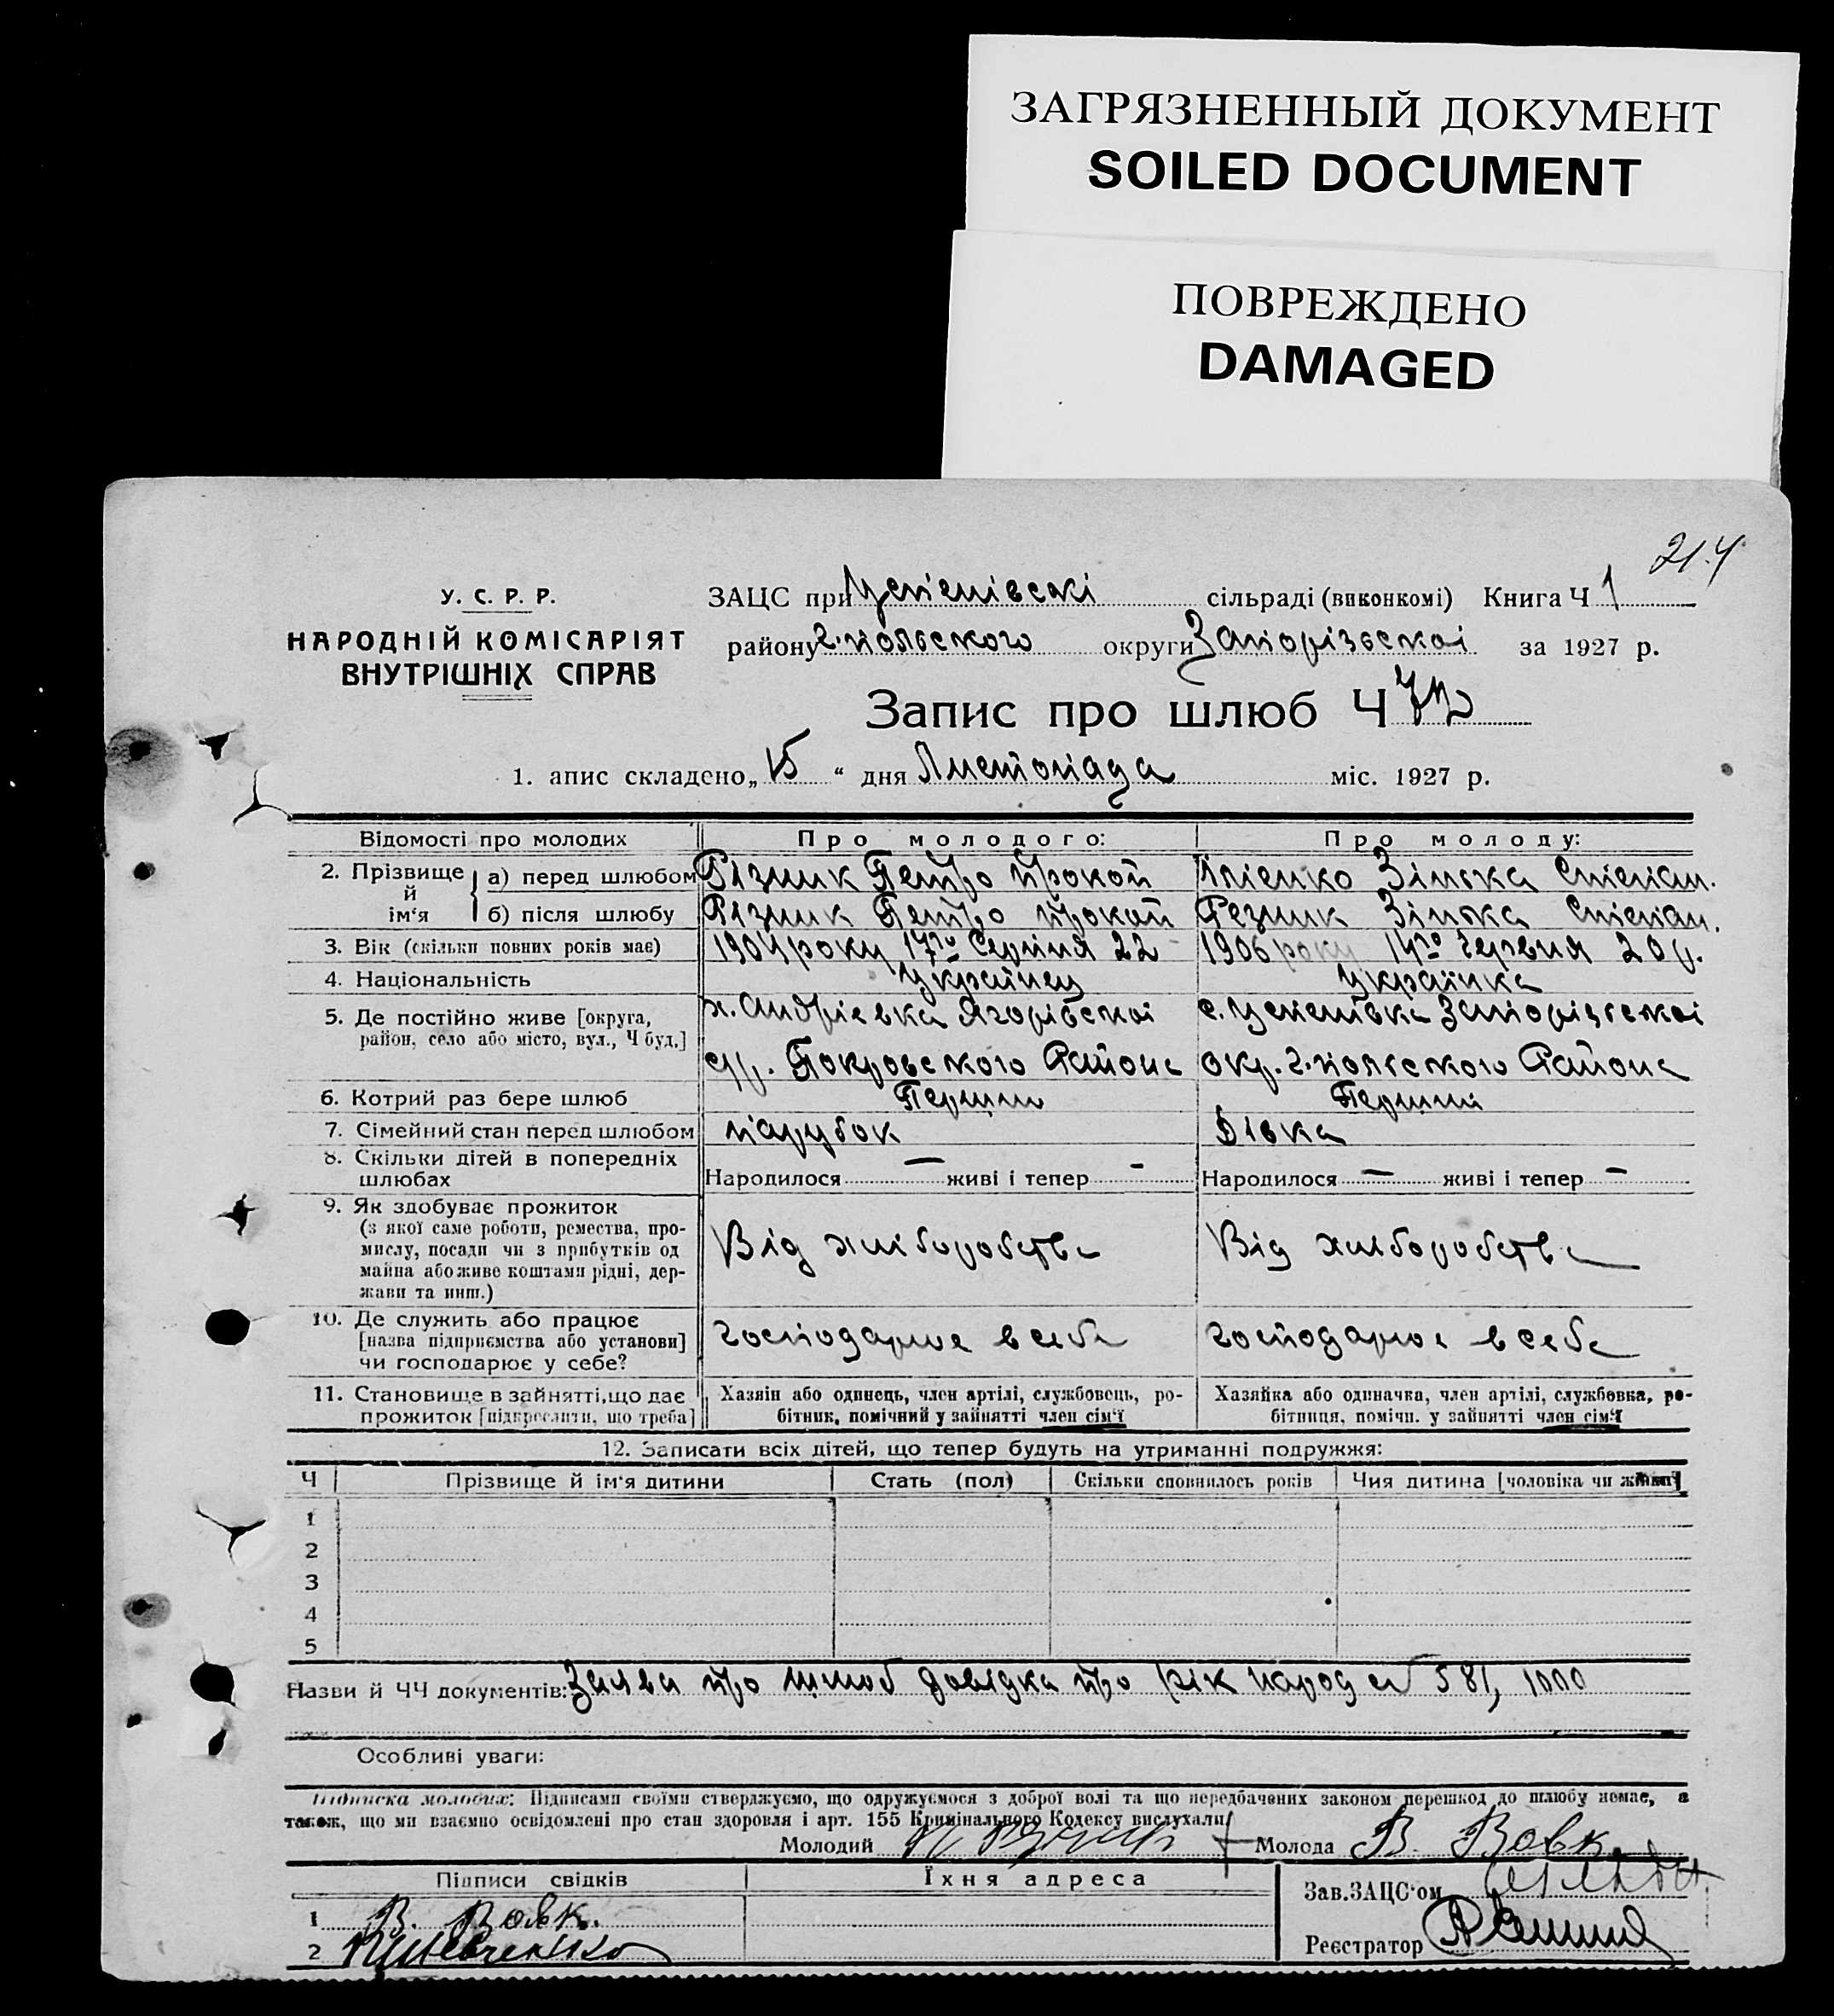 ЗАГРЯЗНЕННЫЙ ДОКУМЕНТ
SOILED DOCUMENT
ПОВРЕЖДЕНО
DAMAGED
У. С. Р. Р.
НАРОДНІЙ КОМІСАРІЯТ
ВНУТРІШНІХ СПРАВ
ЗАЦС при Успенівскі сільраді (виконкомі) Книга Ч 1
району г.-польского округи Запорізьскоі за 1927 р.
Запис про шлюб Ч
1. апис складено „15“ дня Листопада міс. 1927 р.
Відомості про молодих Про молодого: Про молоду:
2. Прізвище й ім'я а) перед шлюбом Різник Петро Прокоп Зінька Степан.
б) після шлюбу Різник Петро Прокоп Резник Зінька Степан.
3. Вік (скільки повних років має) 1904 року 17го Серпня 22 1906 року 14го Червня 20 р.
4. Національність Українец Українка
5. Де постійно живе [округа, х. Андріевка с. Успенівка Запорізьскоі
район, село або місто, вул., Ч буд.]
Покровського Района окр. г.-польского Района
6. Котрий раз бере шлюб Перший Перший
7. Сімейний стан перед шлюбом парубок Дівка
8. Скільки дітей в попередніх
шлюбах Народилося — живі і тепер - Народилося — живі і тепер -
9. Як здобуває прожиток
(з якої саме роботи, ремества, про-
мислу, посади чи з прибутків од Від хліборобства Від хліборобства
майна або живе коштами рідні, дер-
жави та инш.)
10. Де служить або працює
[назва підприємства або установи] господарює в себе господарює в себе
чи господарює у себе?
11. Становище в зайнятті, що дає Хазяін або одинець, член артілі, службовець, ро- Хазяйка або одиначка, член артілі, службовка, ро-
прожиток [підкреслити, що треба] бітник, помічний у зайнятті член сім'ї бітниця, помічн. у зайнятті член сім'ї
12. Записати всіх дітей, що тепер будуть на утриманні подружжя:
Ч Прізвище й ім'я дитини Стать (пол) Скільки сповнилось років Чия дитина [чоловіка чи жінки]
1
2
3
4
5
Назви й ЧЧ документів: Заява про шлюб довідка про рік народ 581, 1000
Особливі уваги:
Підписка молодих: Підписами своїми стверджуємо, що одружуємося з доброї волі та що передбачених законом перешкод до шлюбу немає, а
також, що ми взаємно освідомлені про стан здоровля і арт. 155 Кримінального Кодексу вислухали
Молодий Молода В. Вовк.
Підписи свідків Їхня адреса Зав.ЗАЦС'ом
1 В. Вовк.
2 Шевченко Реєстратор